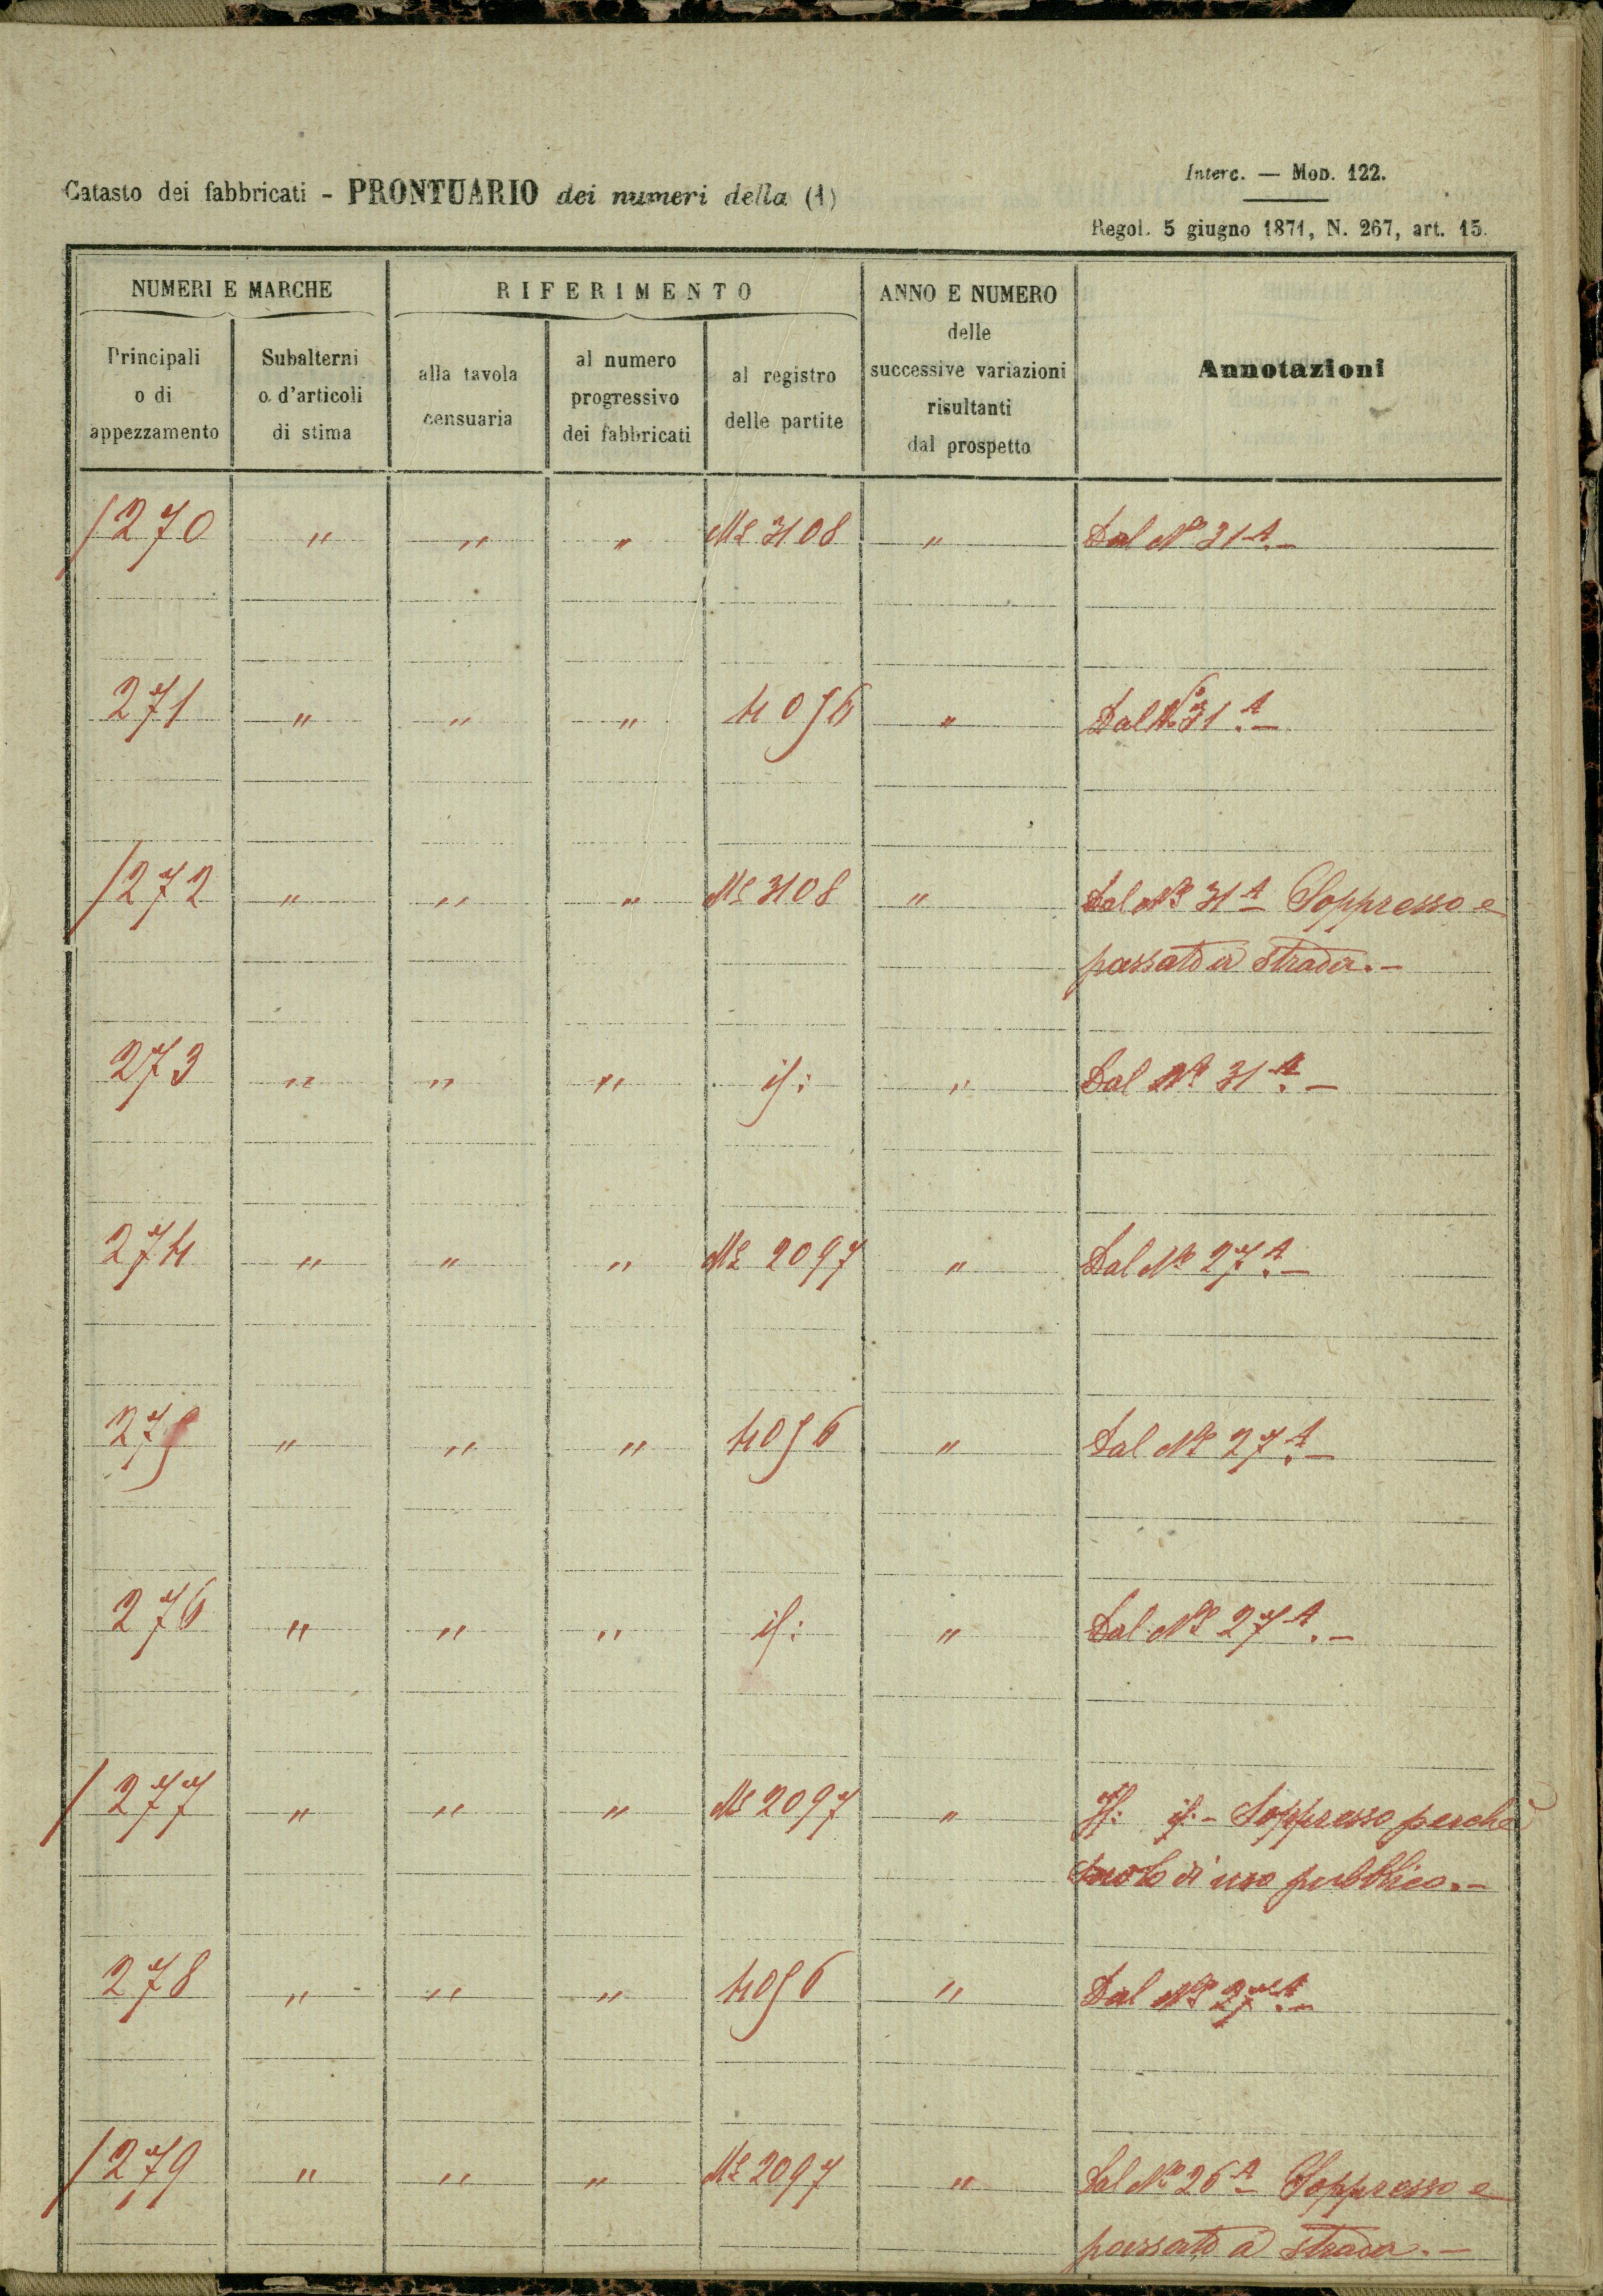 Interc. — Mod. 122.
Catasto dei fabbricati - PRONTUARIO dei numeri della (1)
Regol. 5 giugno 1871, N. 267, art. 15.
NUMERI E MARCHE
RIFERIMENTO
ANNO E NUMERO
delle
successive variazioni
risultanti
dal prospetto
Annotazioni
Principali
o di
appezzamento
Subalterni
o d'articoli
di stima
alla tavola
censuaria
al numero
progressivo
dei fabbricati
al registro
delle partite
/270 " " " 3108 " Dal No 31 A. —
271 " " " 4056 " Dal No 31 A. —
/272 " " " 3108 " Dal No 31 A Soppresso e
passato a strada. —
273 " " " id: " Dal No 31 A. —
274 " " " 2097 " Dal No 27 A. —
275 " " " 4056 " Dal No 27 A. —
276 " " " id: " Dal No 27 A. —
/277 " " " 2097 " Id: id: - Soppresso perchè
suolo di uso pubblico. —
278 " " " 4056 " Dal No 27 A. —
/279 " " " 2097 " Dal No 26 A Soppresso e
passato a strada. —